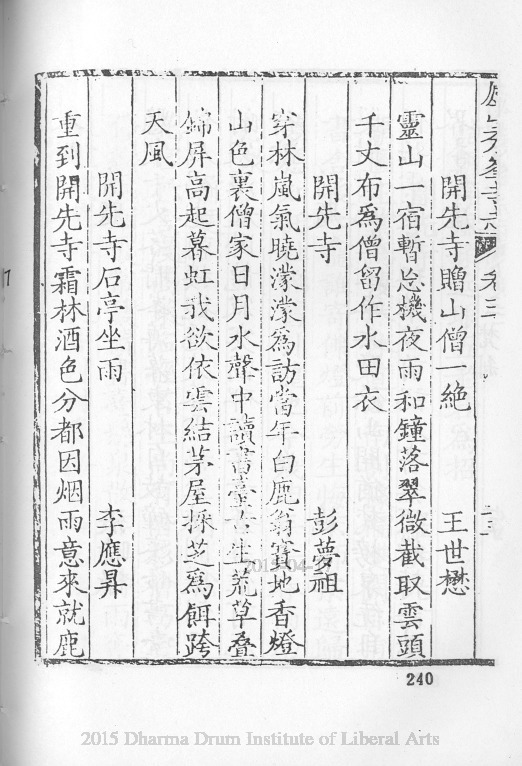 開先寺贈山僧一絶 王世懋
靈山一宿暫忘機夜雨和鐘落翠微截取雲頭
千丈布爲僧留作水田衣
開先寺 彭夢祖
穿林嵐氣曉濛濛爲訪當年白鹿翁寶地香燈
山色裏僧家日月水聲中讀書臺古生荒草疊
錦屏高起暮虹我欲依雲結茅屋採芝爲餌跨
天風
開先寺石亭坐雨 李應昇
重到開先寺霜林酒色分都因烟雨意來就鹿
卷三
240
2015 Dharma Drum Institute of Liberal Arts